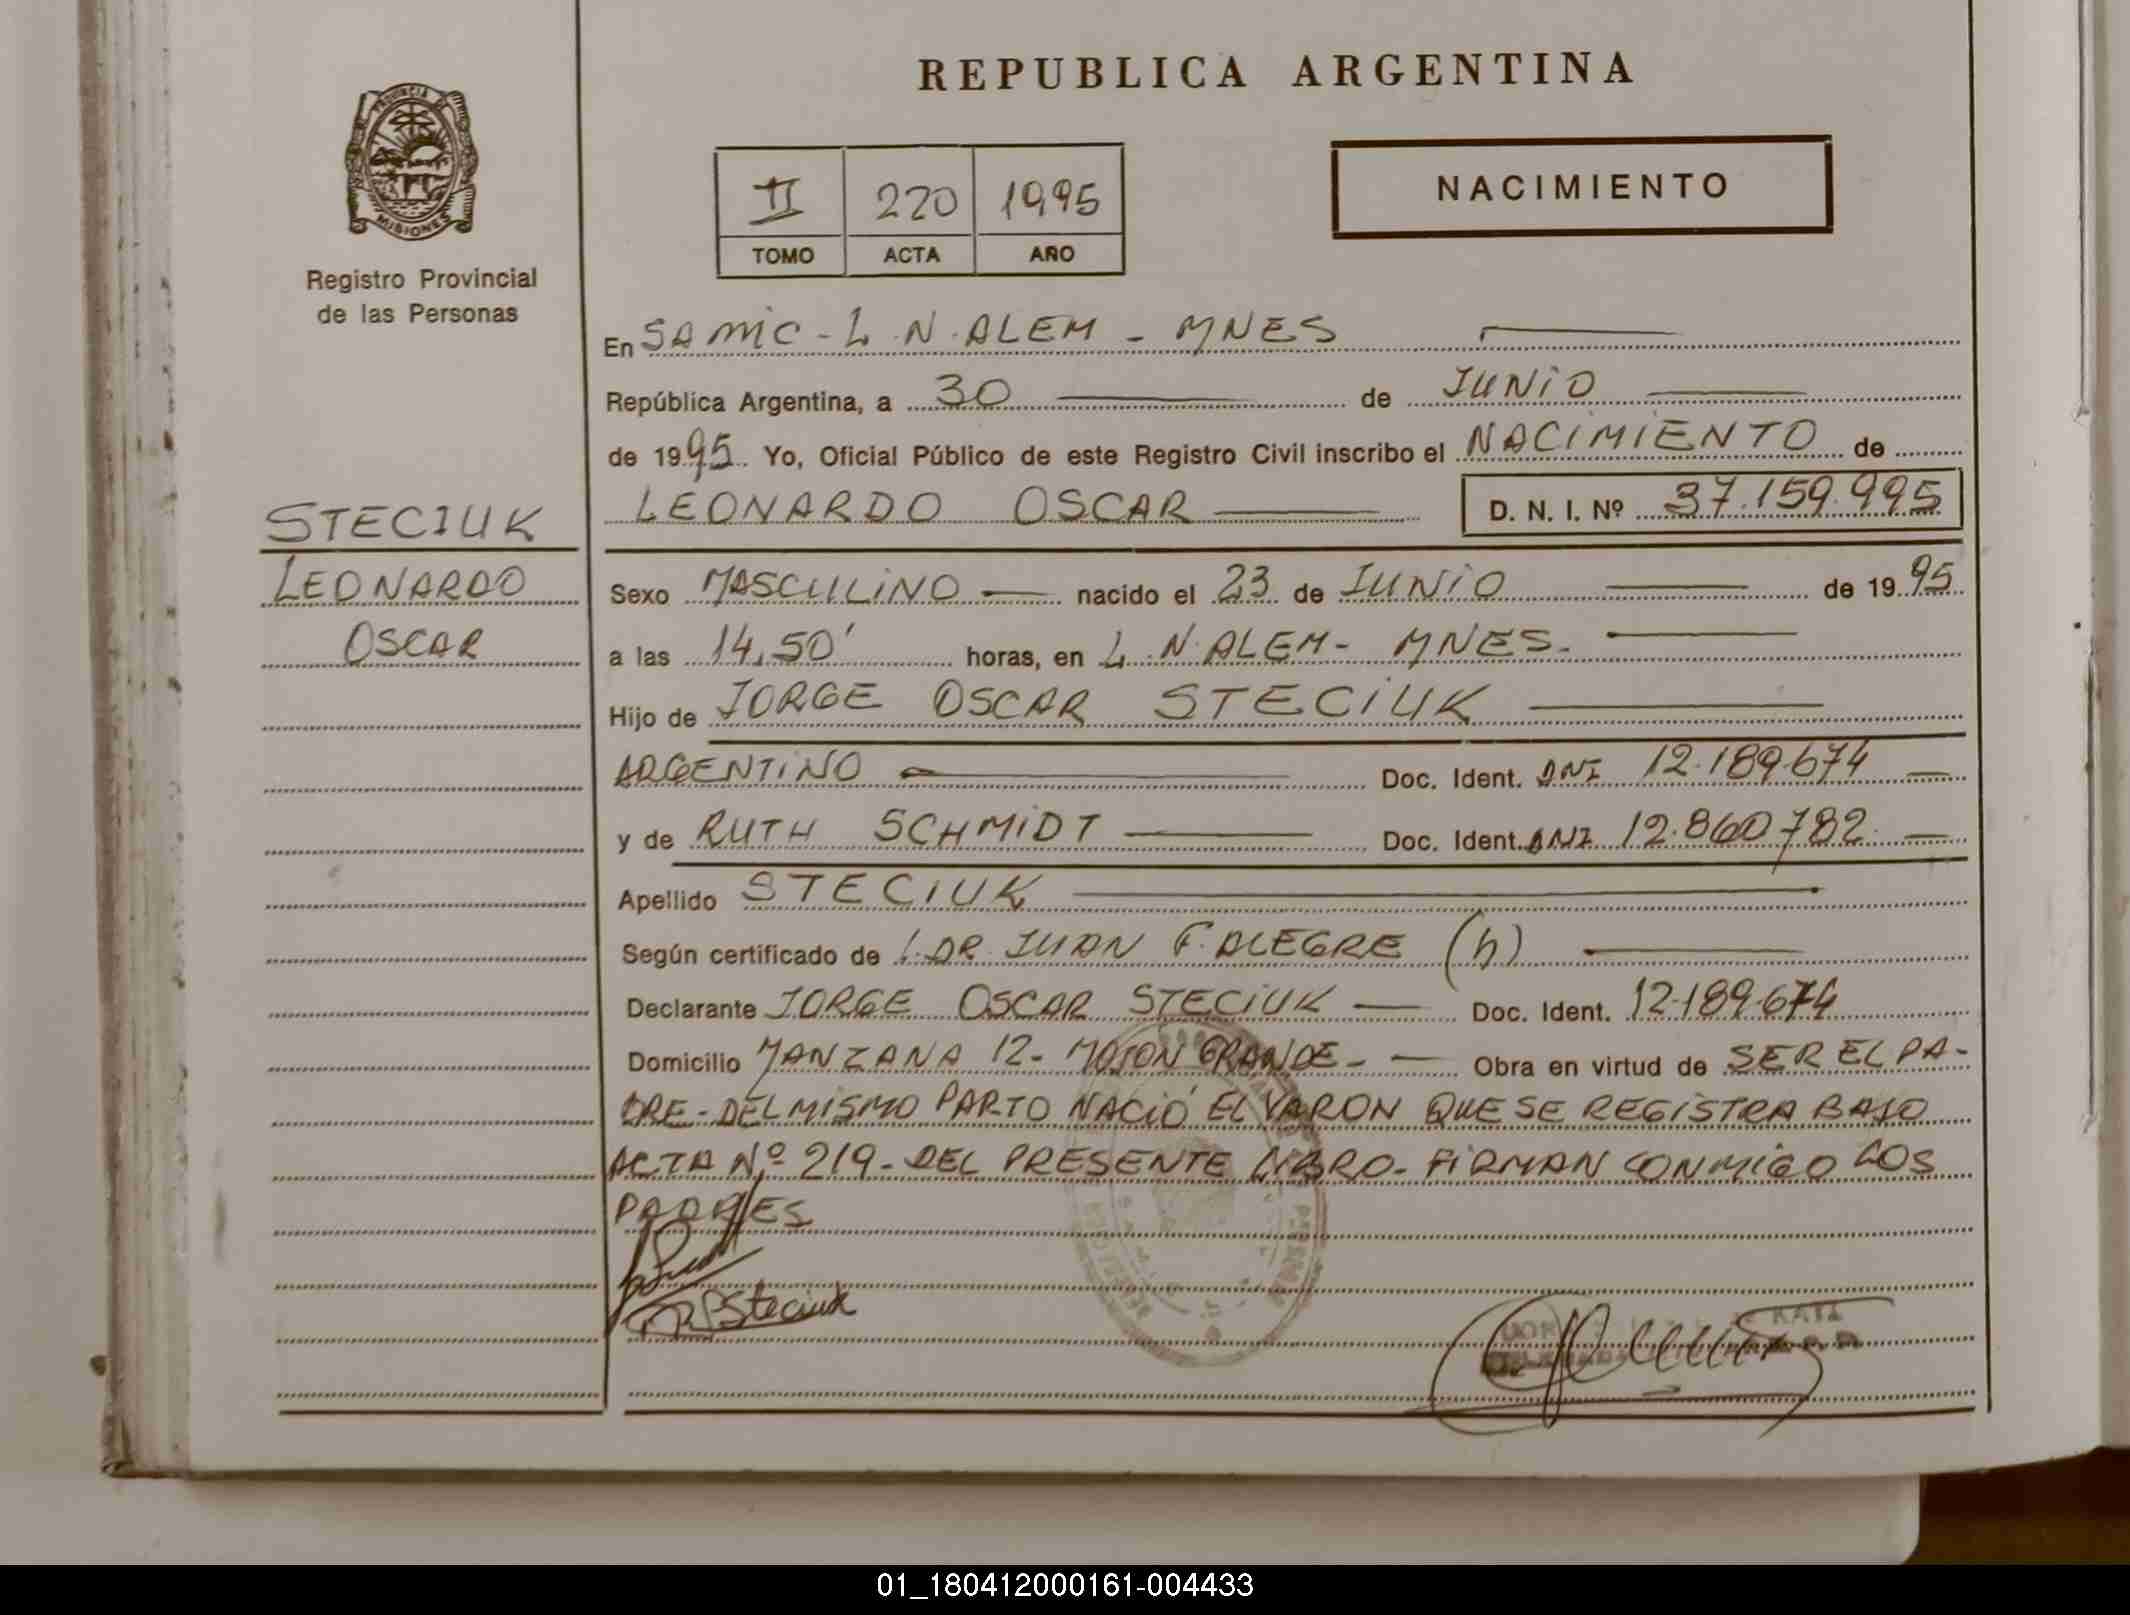 REPUBLICA ARGENTINA
PROVINCIA DE
MISIONES
Registro Provincial
de las Personas
II 220 1995
TOMO ACTA AÑO
NACIMIENTO
En SAMIC - L.N. ALEM - MNES
República Argentina, a 30 de JUNIO
de 1995 Yo, Oficial Público de este Registro Civil inscribo el NACIMIENTO de
LEONARDO OSCAR D. N. I. Nº 37.159.995
STECIUK
LEONARDO
OSCAR
Sexo MASCULINO nacido el 23 de JUNIO de 1995
a las 14,50' horas, en L.N. ALEM - MNES.
Hijo de JORGE OSCAR STECIUK
ARGENTINO Doc. Ident. DNI 12.189.674
y de RUTH SCHMIDT Doc. Ident. DNI 12.860.782
Apellido STECIUK
Según certificado de DR. JUAN F. ALEGRE (h)
Declarante JORGE OSCAR STECIUK Doc. Ident. 12.189.674
Domicilio MANZANA 12 - MOJON GRANDE - Obra en virtud de SER EL PA-
DRE - DEL MISMO PARTO NACIÓ EL VARON QUE SE REGISTRA BAJO
ACTA Nº 219 - DEL PRESENTE LIBRO - FIRMAN CONMIGO LOS
PADRES
Steciuk
01_180412000161-004433